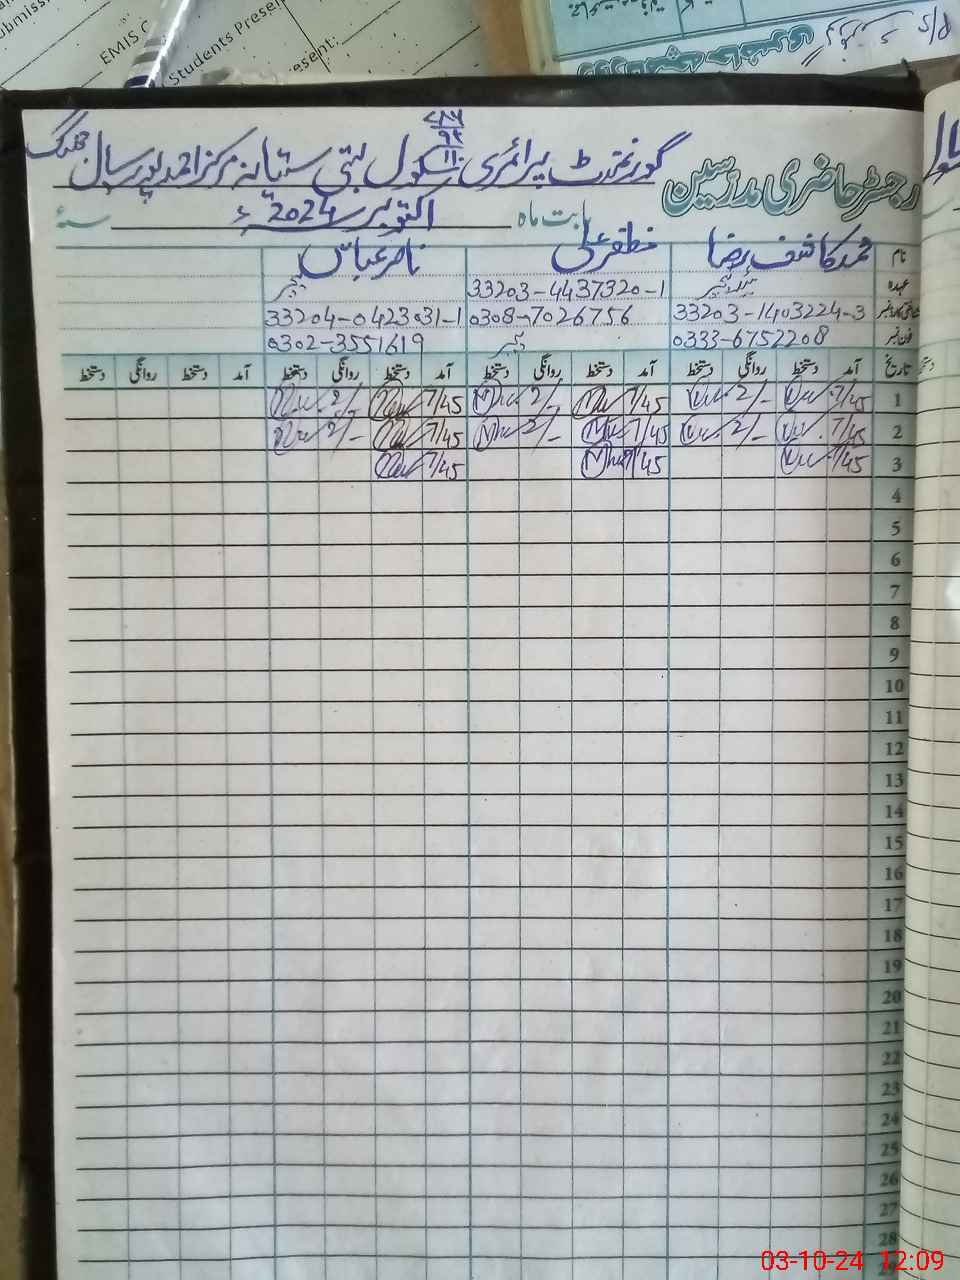 EMIS
Students Present
esent:
P/S
۷۸۶
۹۲
۱۱۰
رجسٹر حاضری مدرسین
گورنمنٹ پرائمری سکول بستی ستیانہ مرکز احمد پور سیال جھنگ
بابت ماہ اکتوبر 2024ء سنہ
نام محمد کاشف رضا مظفر علی ناصر عباس
عہدہ ہیڈ ٹیچر 33203-4437320-1 ٹیچر
شناختی کارڈ نمبر 33203-1403224-3 0308-7026756 33204-0423031-1
فون نمبر 0333-6752208 ٹیچر 0302-3551619
تاریخ آمد دستخط روانگی دستخط آمد دستخط روانگی دستخط آمد دستخط روانگی دستخط آمد دستخط روانگی دستخط
1 7/45 2/- 7/45 2/- 7/45 2/-
2 7/45 2/- 7/45 2/- 7/45 2/-
3 7/45 7/45 7/45
4
5
6
7
8
9
10
11
12
13
14
15
16
17
18
19
20
21
22
23
24
25
26
27
28
29
03-10-24 12:09